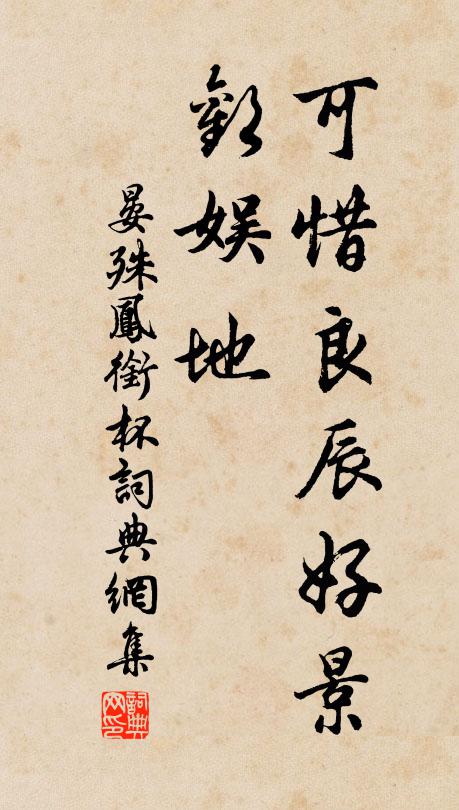 可惜良辰好景
歡娛地
晏殊鳳銜杯詞典網集
詞典
网印